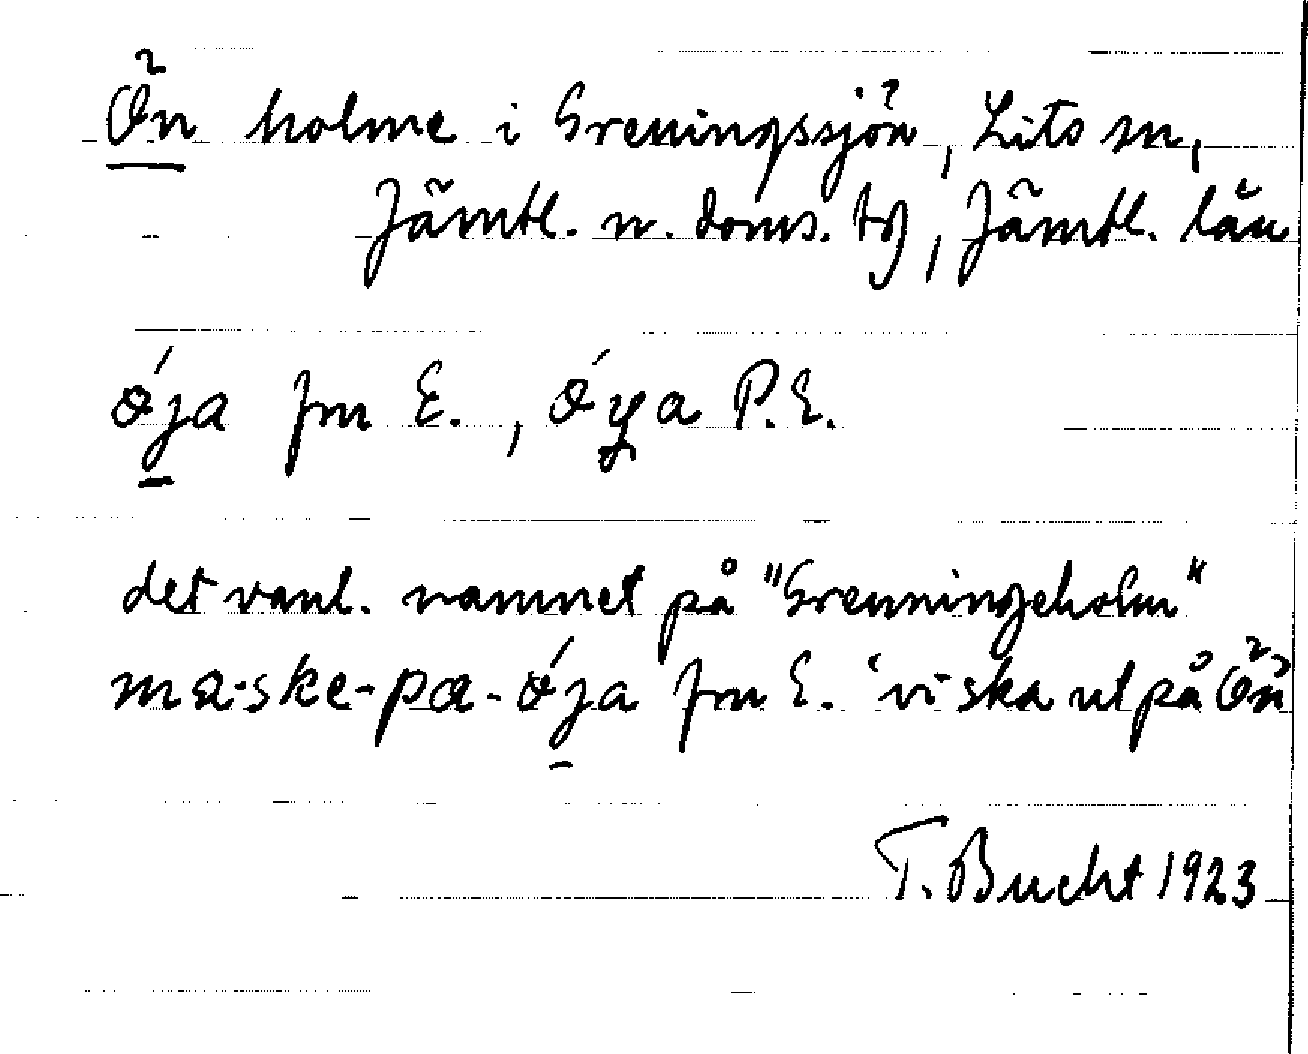 Ön holme i Greningssjön, Lits sn,
Jämtl. n. doms. tg, Jämtl. län
ǿja fm E., ǿya P.E.
det vanl. namnet på "Grenningeholm"
ma-ske-pa-ǿja fm E. 'vi ska ut på Ön
T. Bucht 1923